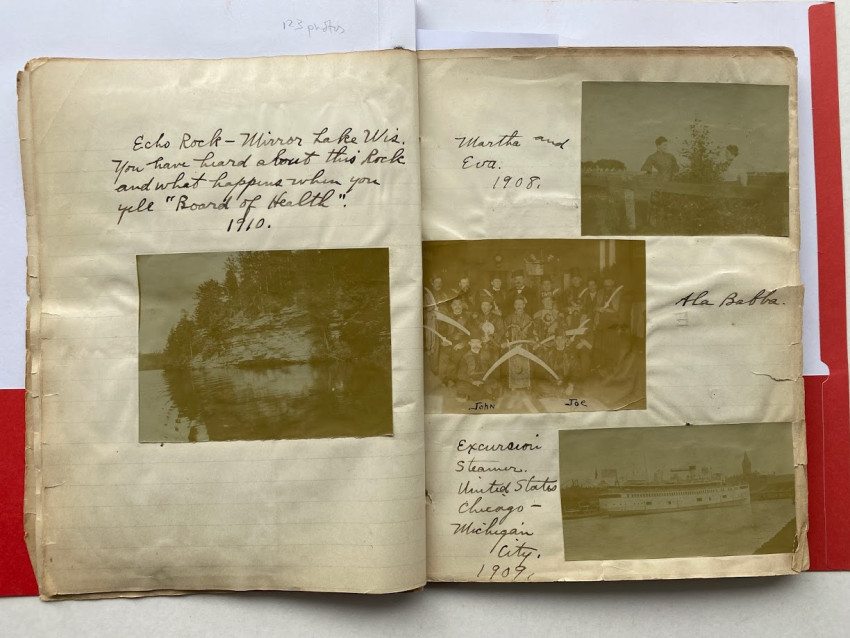 123 photos
Echo Rock – Mirror Lake Wis.
You have heard about this Rock
and what happens when you
yell "Board of Health".
1910.
Martha and
Eva.
1908.
Ala Babba.
John
Joe
Excursion
Steamer.
United States
Chicago –
Michigan
City.
1909.